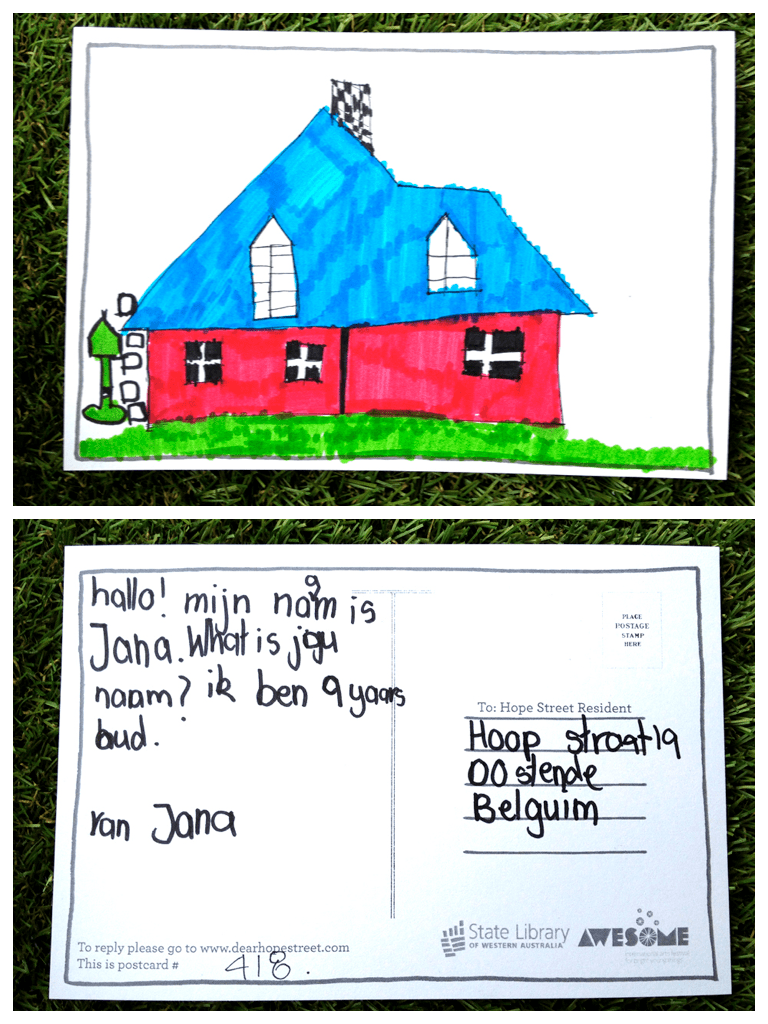 hallo! mijn naam is
Jana. What is jou
naam? ik ben 9 yaars
oud.
van Jana
PLACE
POSTAGE
STAMP
HERE
To: Hope Street Resident
Hoop straat 19
OOstende
Belguim
To reply please go to www.dearhopestreet.com
This is postcard # 418.
State Library
OF WESTERN AUSTRALIA
AWESOME